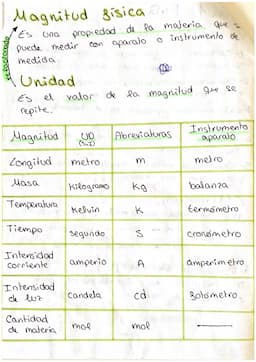 Magnitud física
Es una propiedad de la materia que se
puede medir con aparato o instrumento de
medida
Unidad
Es el valor de la magnitud que se
repite.
Magnitud UD (S.I) Abreviaturas Instrumento aparato
Longitud metro m metro
Masa Kilogramo Kg balanza
Temperatura Kelvin K termómetro
Tiempo segundo S cronómetro
Intensidad corriente amperio A amperímetro
Intensidad de luz candela cd fotómetro.
Cantidad de materia mol mol